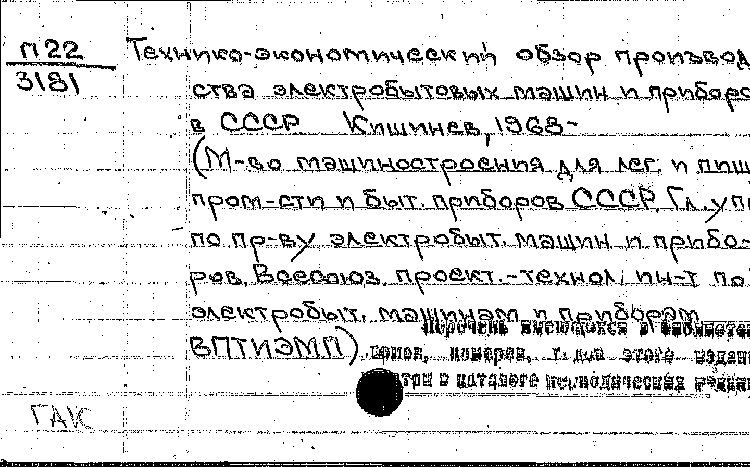 П22
3181
Технико-экономический обзор производ
ства электробытовых машин и приборо
в СССР Кишинев, 1968-
(М-во машиностроения для лег. и пищ
пром-сти и быт. приборов СССР Гл. упр
по пр-ву электробыт. машин и прибо-
ров. Всесоюз. проект.-технол. ин-т по
электробыт. машинам и приборам
ВПТИЭМП)
Перечень имеющихся в библиотеке
томов, номеров, т. д. этого издани
в каталоге периодических издани
ГАК